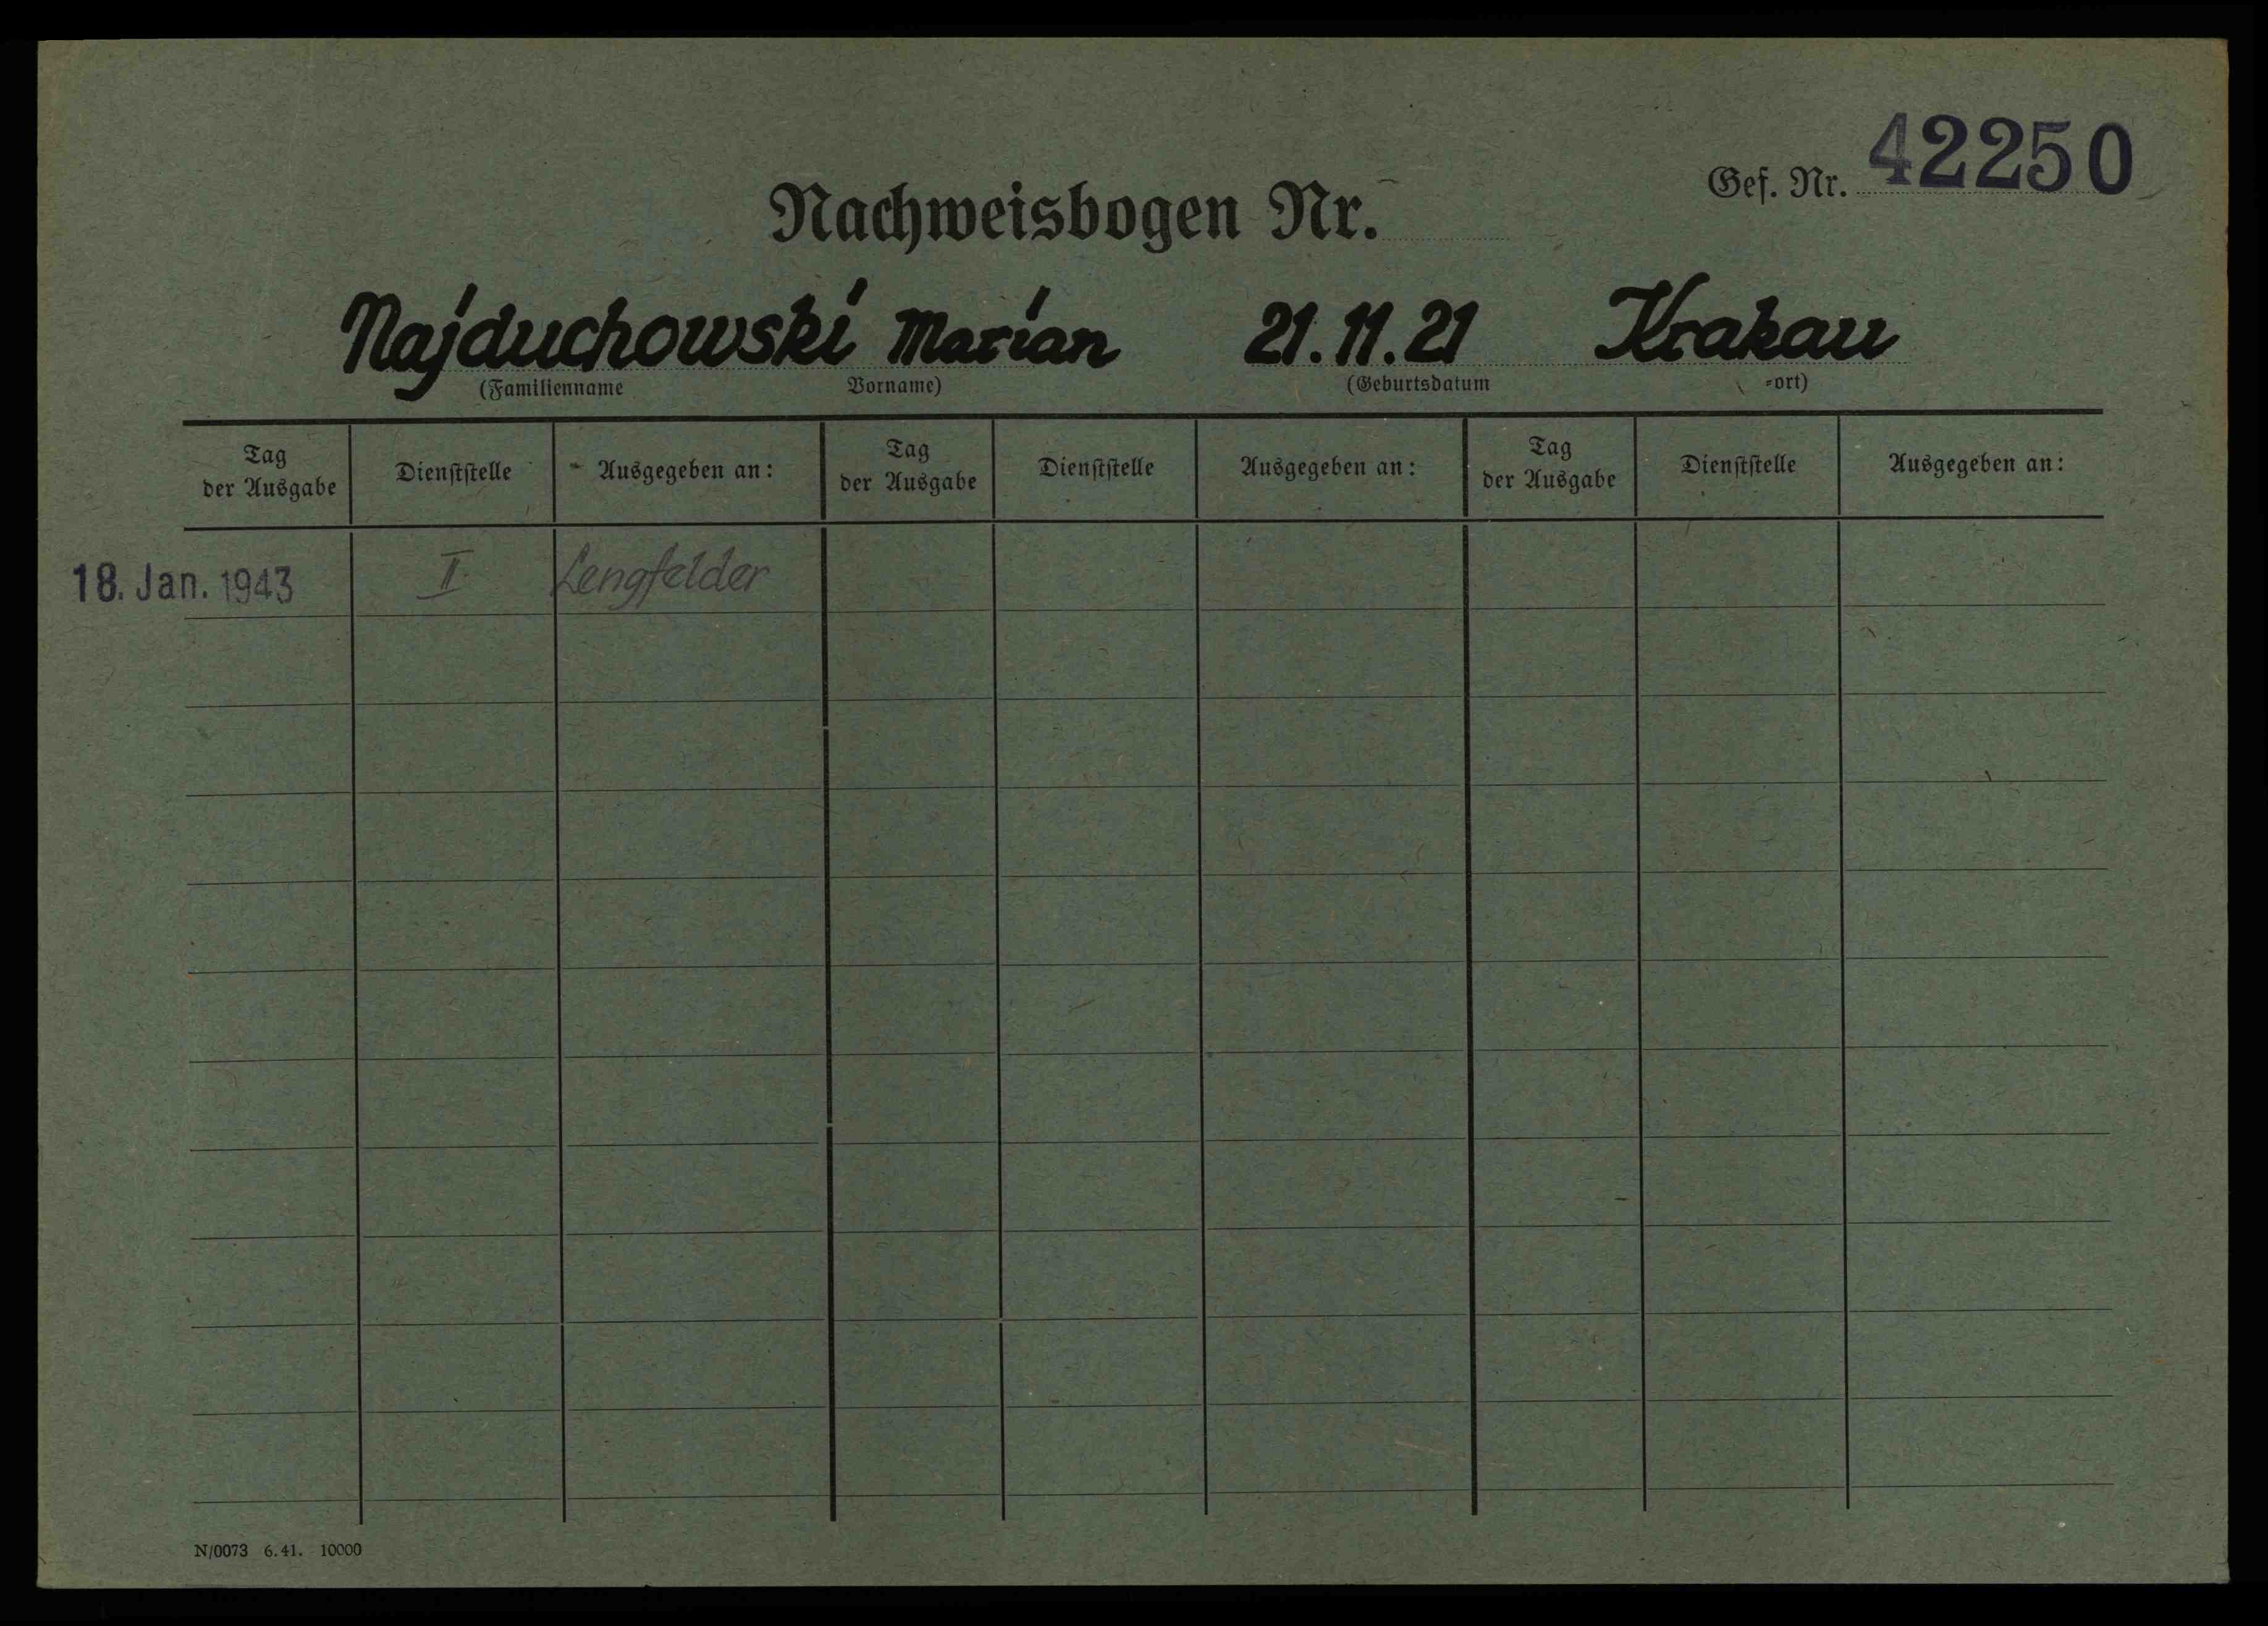 Gef. Nr. 42250
Nachweisbogen Nr.
Najduchowski Marian 21.11.21 Krakau
(Familienname Vorname) (Geburtsdatum -ort)
Tag der Ausgabe Dienststelle Ausgegeben an: Tag der Ausgabe Dienststelle Ausgegeben an: Tag der Ausgabe Dienststelle Ausgegeben an:
18. Jan. 1943 II. Lengfelder
N/0073 6.41. 10000